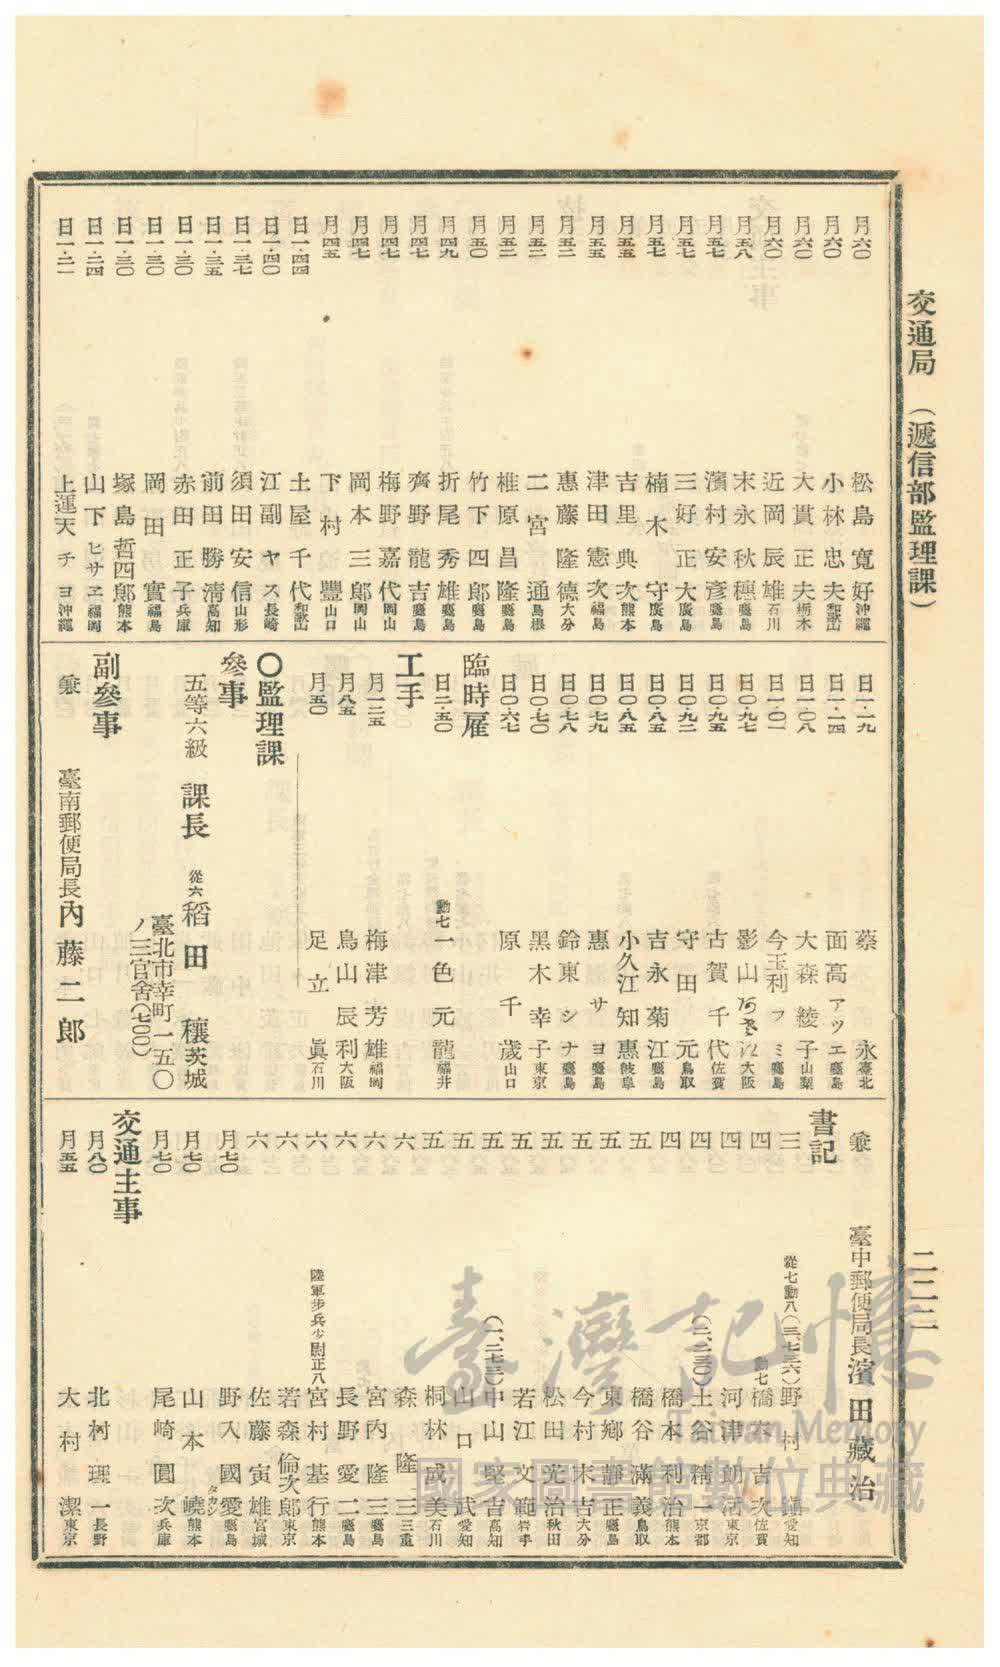 交通局　（遞信部監理課）
二二二
月六〇　松島寬好　沖繩
月六〇　小林忠夫　和歌山
月六〇　大貫正夫　栃木
月六〇　近岡辰雄　石川
月五八　末永秋穗　廣島
月五七　濱村安彥　鹿兒島
月五七　三好正大　廣島
月五七　楠木守　廣島
月五五　吉里典次　熊本
月五五　津田憲次　福島
月五二　惠藤隆德　大分
月五二　二宮通　島根
月五二　椎原昌隆　鹿兒島
月五〇　竹下四郎　鹿兒島
月四九　折尾秀雄　鹿兒島
月四七　齊野龍吉　鹿兒島
月四七　梅野嘉代　岡山
月四七　岡本三郞　岡山
月四五　下村豐　山口
日一・四四　土屋千代　和歌山
日一・四〇　江副ヤス　長崎
日一・三七　須田安信　山形
日一・三五　前田勝淸　高知
日一・三〇　赤田正子　兵庫
日一・三〇　岡田實　福島
日一・三〇　塚島哲四郞　熊本
日一・二四　山下ヒサヱ　福岡
日一・二一　上運天チヨ　沖繩
日一・一九　蔡永　臺北
日一・一四　面高アツエ　鹿兒島
日一・〇八　大森綾子　山梨
日一・〇一　今玉利フミ　鹿兒島
日〇・九七　影山　大阪
日〇・九五　古賀千代　佐賀
日〇・九二　守田元　鳥取
日〇・八五　吉永菊江　鹿兒島
日〇・八五　小久江知惠　岐阜
日〇・七九　惠サヨ　鹿兒島
日〇・七八　鈴東シナ　鹿兒島
日〇・七〇　黑木幸子　東京
日〇・六七　原千歲　山口
臨時雇
日二・五〇　勳七　一色元龍　福井
工手
月一二五　梅津芳雄　福岡
月八五　鳥山辰利　大阪
月五〇　足立眞　石川
〇監理課
參事
五等六級　課長　從六　稻田穰　茨城
臺北市幸町一五〇
ノ三官舍（七〇〇）
副參事
兼　臺南郵便局長　內藤二郞
兼　臺中郵便局長　濱田藏治
書記
三　從七勳八（三、七三六）　野村鎭　愛知
四　勳七　橋本吉次　佐賀
四　河津創活　東京
四　（二、二三〇）　土谷精一　京都
四　橋本利治　熊本
五　橋谷滿義　鳥取
五　東鄉靜正　鹿兒島
五　今村末吉　大分
五　松田光治　秋田
五　若江文範　岩手
五　（一、二七三）　中山堅吉　高知
五　山口武　愛知
五　桐林成美　石川
六　森隆三　三重
六　宮內隆三　鹿兒島
六　長野愛二　鹿兒島
六　陸軍步兵少尉正八　宮村基行　熊本
六　若森倫次郞　東京
六　佐藤寅雄　宮城
月七〇　野入國愛　鹿兒島
月七〇　山本嶢　タカシ　熊本
月七〇　尾崎圓次　兵庫
交通主事
月八〇　北村理一　長野
月五五　大村潔　東京
臺灣記憶
Taiwan Memory
國家圖書館數位典藏